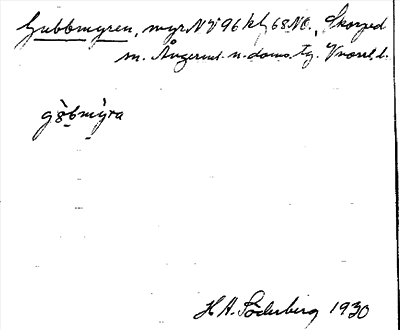 Gubbmyren, myr NV 96 kbl 68 NO., Skorped
m. Ångerml. n. doms. tg. Vnorrl. l.
gòbmỳra
H A. Söderberg 1930